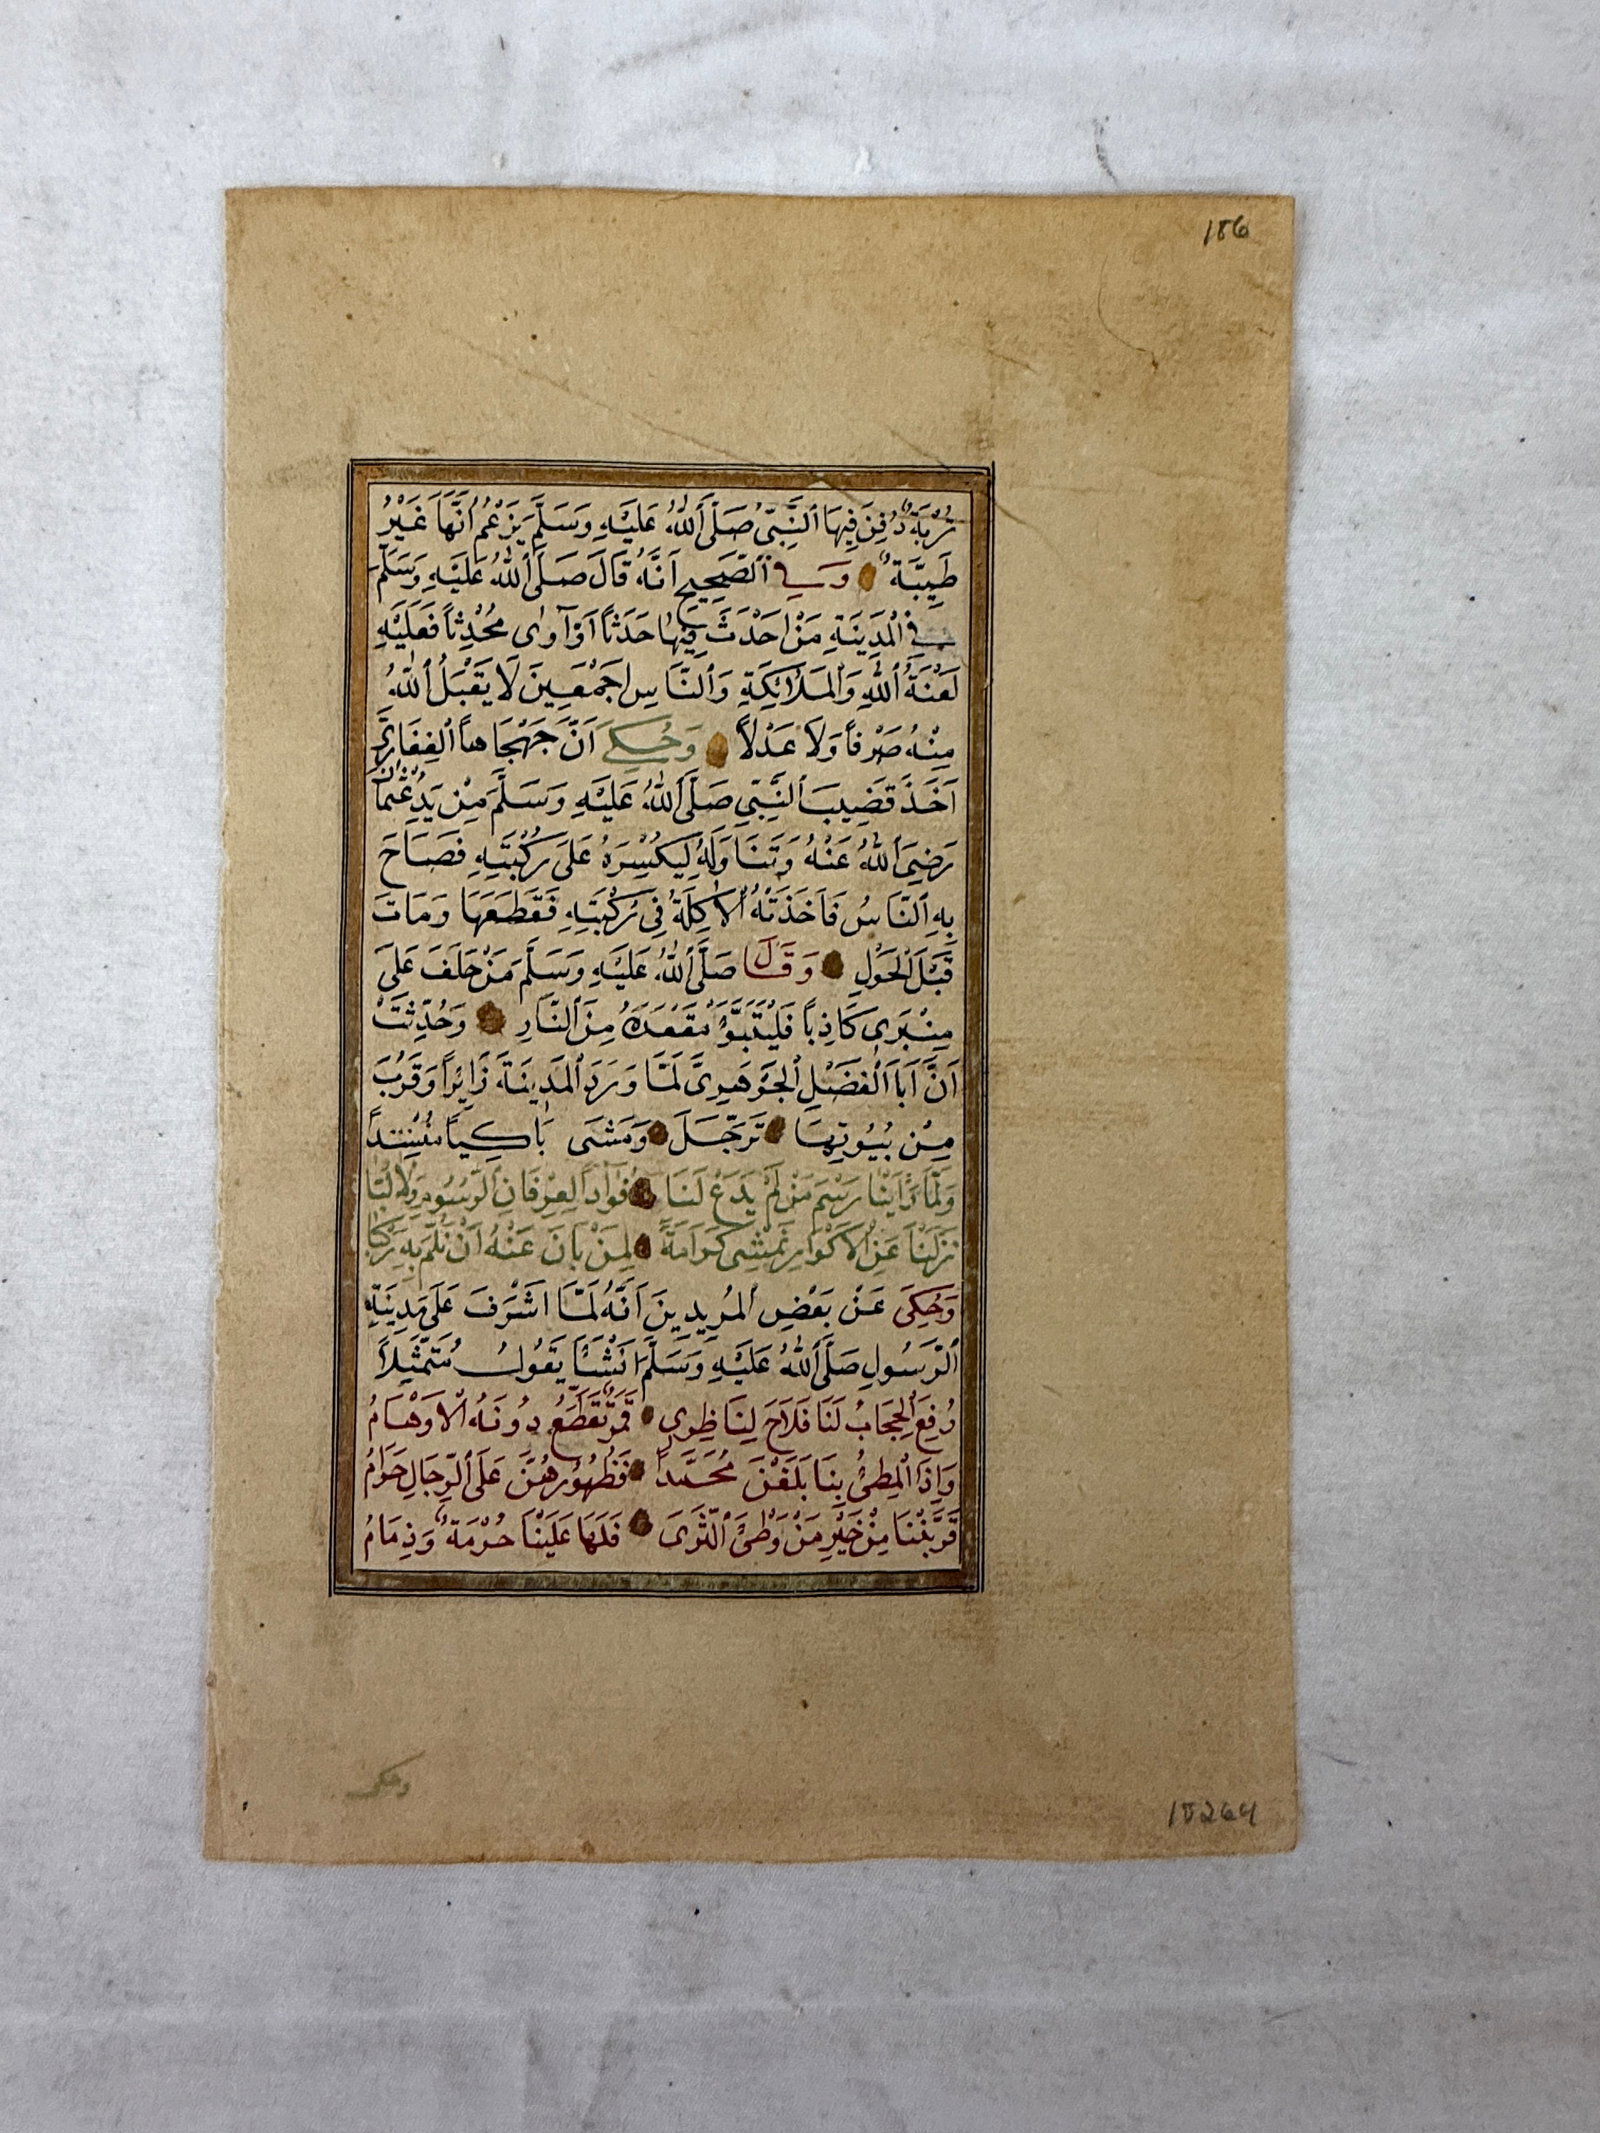 186
تُرْبَةٌ دُفِنَ فِيهَا ٱلنَّبِيُّ صَلَّى ٱللهُ عَلَيْهِ وَسَلَّمَ يَزْعُمُ أَنَّهَا غَيْرُ
طَيِّبَةٍ وَفِي ٱلصَّحِيحِ أَنَّهُ قَالَ صَلَّى ٱللهُ عَلَيْهِ وَسَلَّمَ
فِي ٱلْمَدِينَةِ مَنْ أَحْدَثَ فِيهَا حَدَثًا أَوْ آوٰى مُحْدِثًا فَعَلَيْهِ
لَعْنَةُ ٱللهِ وَٱلْمَلَائِكَةِ وَٱلنَّاسِ أَجْمَعِينَ لَا يَقْبَلُ ٱللهُ
مِنْهُ صَرْفًا وَلَا عَدْلًا وَحُكِيَ أَنَّ جَهْجَاهًا ٱلْغِفَارِيَّ
أَخَذَ قَضِيبَ ٱلنَّبِيِّ صَلَّى ٱللهُ عَلَيْهِ وَسَلَّمَ مِنْ يَدِ عُثْمَانَ
رَضِيَ ٱللهُ عَنْهُ وَتَنَاوَلَهُ لِيَكْسِرَهُ عَلَى رُكْبَتِهِ فَصَاحَ
بِهِ ٱلنَّاسُ فَأَخَذَتْهُ ٱلْأَكِلَةُ فِي رُكْبَتِهِ فَقَطَعَهَا وَمَاتَ
قَبْلَ ٱلْحَوْلِ وَقَالَ صَلَّى ٱللهُ عَلَيْهِ وَسَلَّمَ مَنْ حَلَفَ عَلَى
مِنْبَرِي كَاذِبًا فَلْيَتَبَوَّءْ مَقْعَدَهُ مِنَ ٱلنَّارِ وَحُدِّثْتُ
أَنَّ أَبَا ٱلْفَضْلِ ٱلْجَوْهَرِيَّ لَمَّا وَرَدَ ٱلْمَدِينَةَ زَائِرًا وَقَرُبَ
مِنْ بُيُوتِهَا تَرَجَّلَ وَمَشَى بَاكِيًا مُنْشِدًا
وَلَمَّا رَأَيْنَا رَسْمَ مَنْ لَمْ يَدَعْ لَنَا فُؤَادًا لِعِرْفَانِ ٱلرُّسُومِ وَلَا لُبَّا
نَزَلْنَا عَنِ ٱلْأَكْوَارِ نَمْشِي كَرَامَةً لِمَنْ بَانَ عَنْهُ أَنْ نُلِمَّ بِهِ رَكْبَا
وَحُكِيَ عَنْ بَعْضِ ٱلْمُرِيدِينَ أَنَّهُ لَمَّا أَشْرَفَ عَلَى مَدِينَةِ
ٱلرَّسُولِ صَلَّى ٱللهُ عَلَيْهِ وَسَلَّمَ أَنْشَأَ يَقُولُ مُتَمَثِّلًا
رُفِعَ ٱلْحِجَابُ لَنَا فَلَاحَ لِنَاظِرِي قَمَرٌ تَقَطَّعُ دُونَهُ ٱلْأَوْهَامُ
وَإِذَا ٱلْمَطِيُّ بِنَا بَلَغْنَ مُحَمَّدًا فَظُهُورُهُنَّ عَلَى ٱلرِّجَالِ حَرَامُ
قَرَّبْنَنَا مِنْ خَيْرِ مَنْ وَطِئَ ٱلثَّرَى فَلَهَا عَلَيْنَا حُرْمَةٌ وَذِمَامُ
وحكي
15264